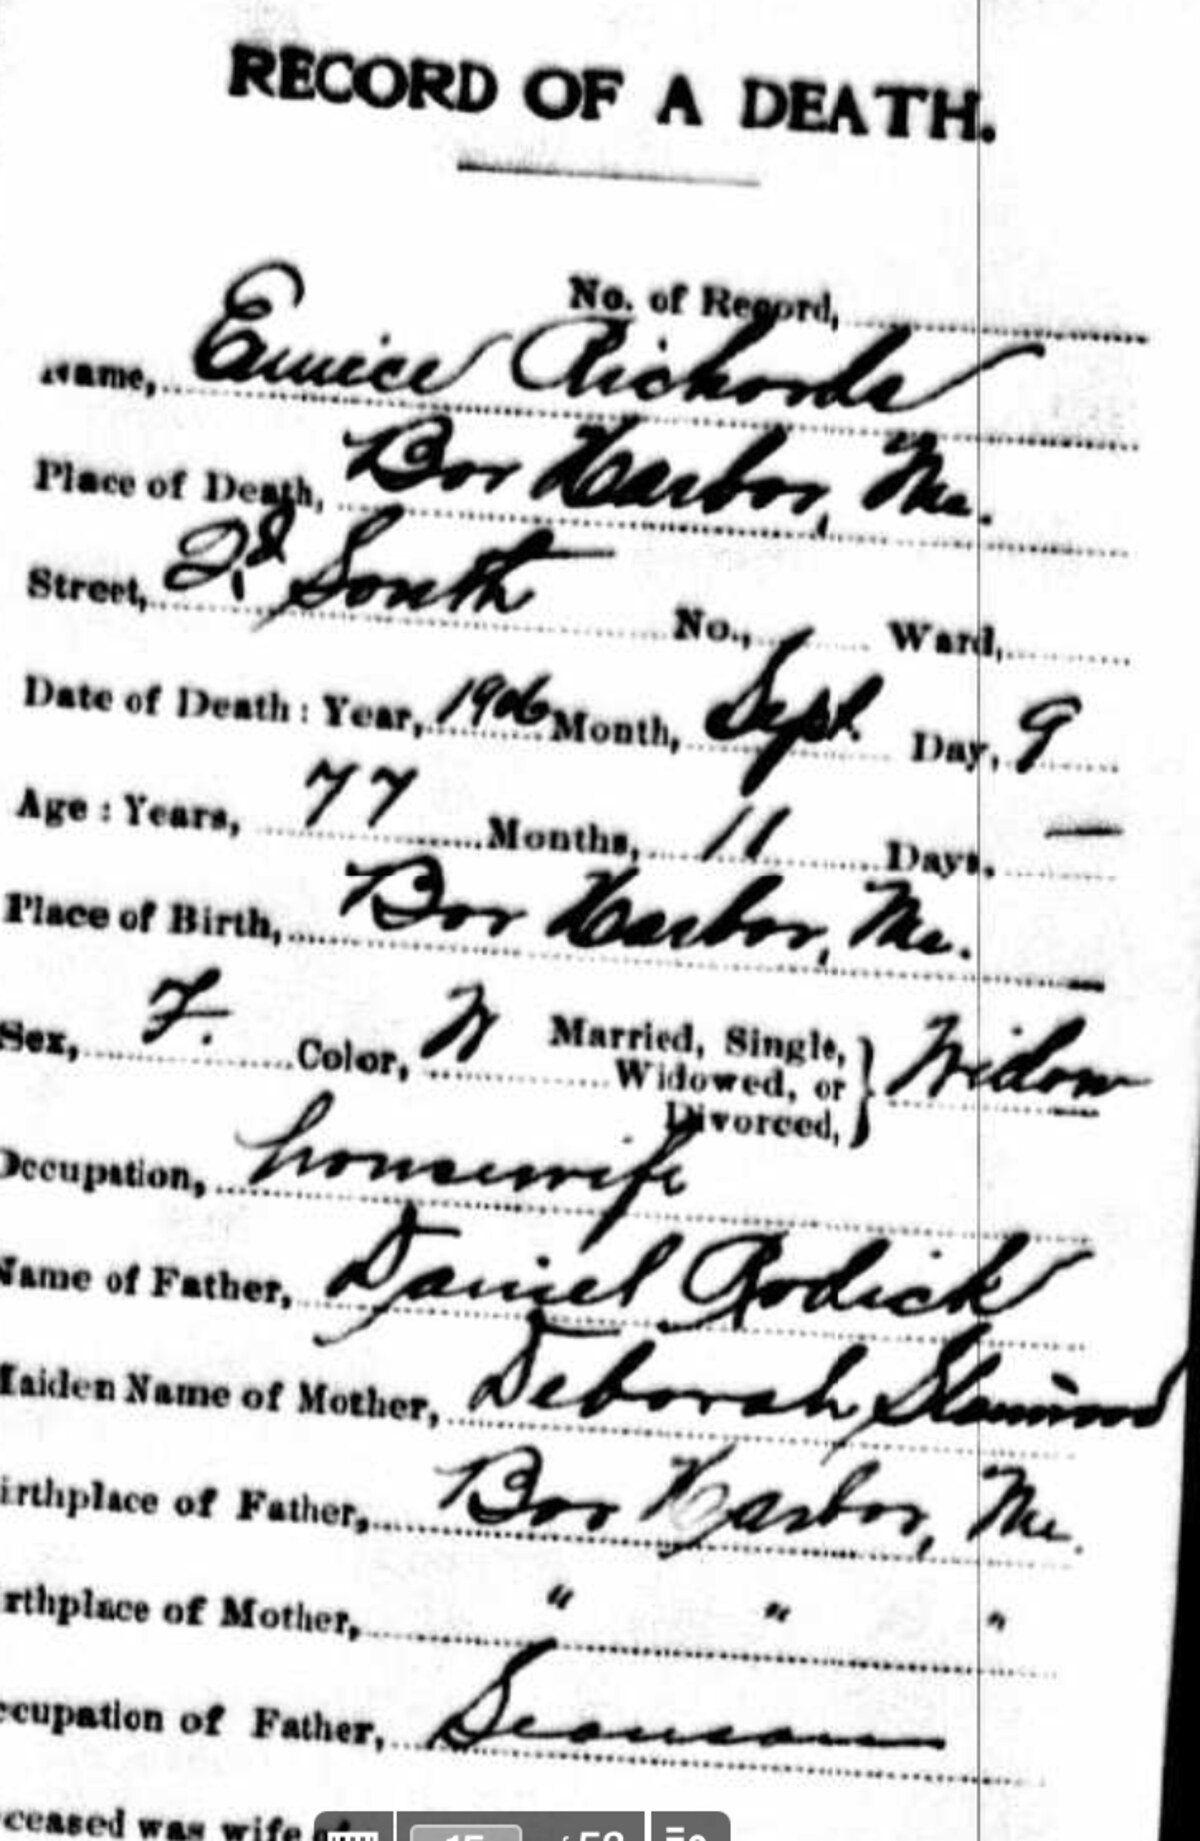 RECORD OF A DEATH.
No. of Record,
Name, Eunice Richards
Place of Death, Bar Harbor, Me.
Street, 2d South No., Ward,
Date of Death: Year, 1906 Month, Sept. Day, 9
Age: Years, 77 Months, 11 Days, —
Place of Birth, Bar Harbor, Me.
Sex, F. Color, W Married, Single, Widowed, or Divorced, } Widow
Occupation, housewife
Name of Father, Daniel Rodick
Maiden Name of Mother, Deborah Stanwood
irthplace of Father, Bar Harbor, Me.
rthplace of Mother, " " "
ccupation of Father, Seaman
ceased was wife of
/ 58